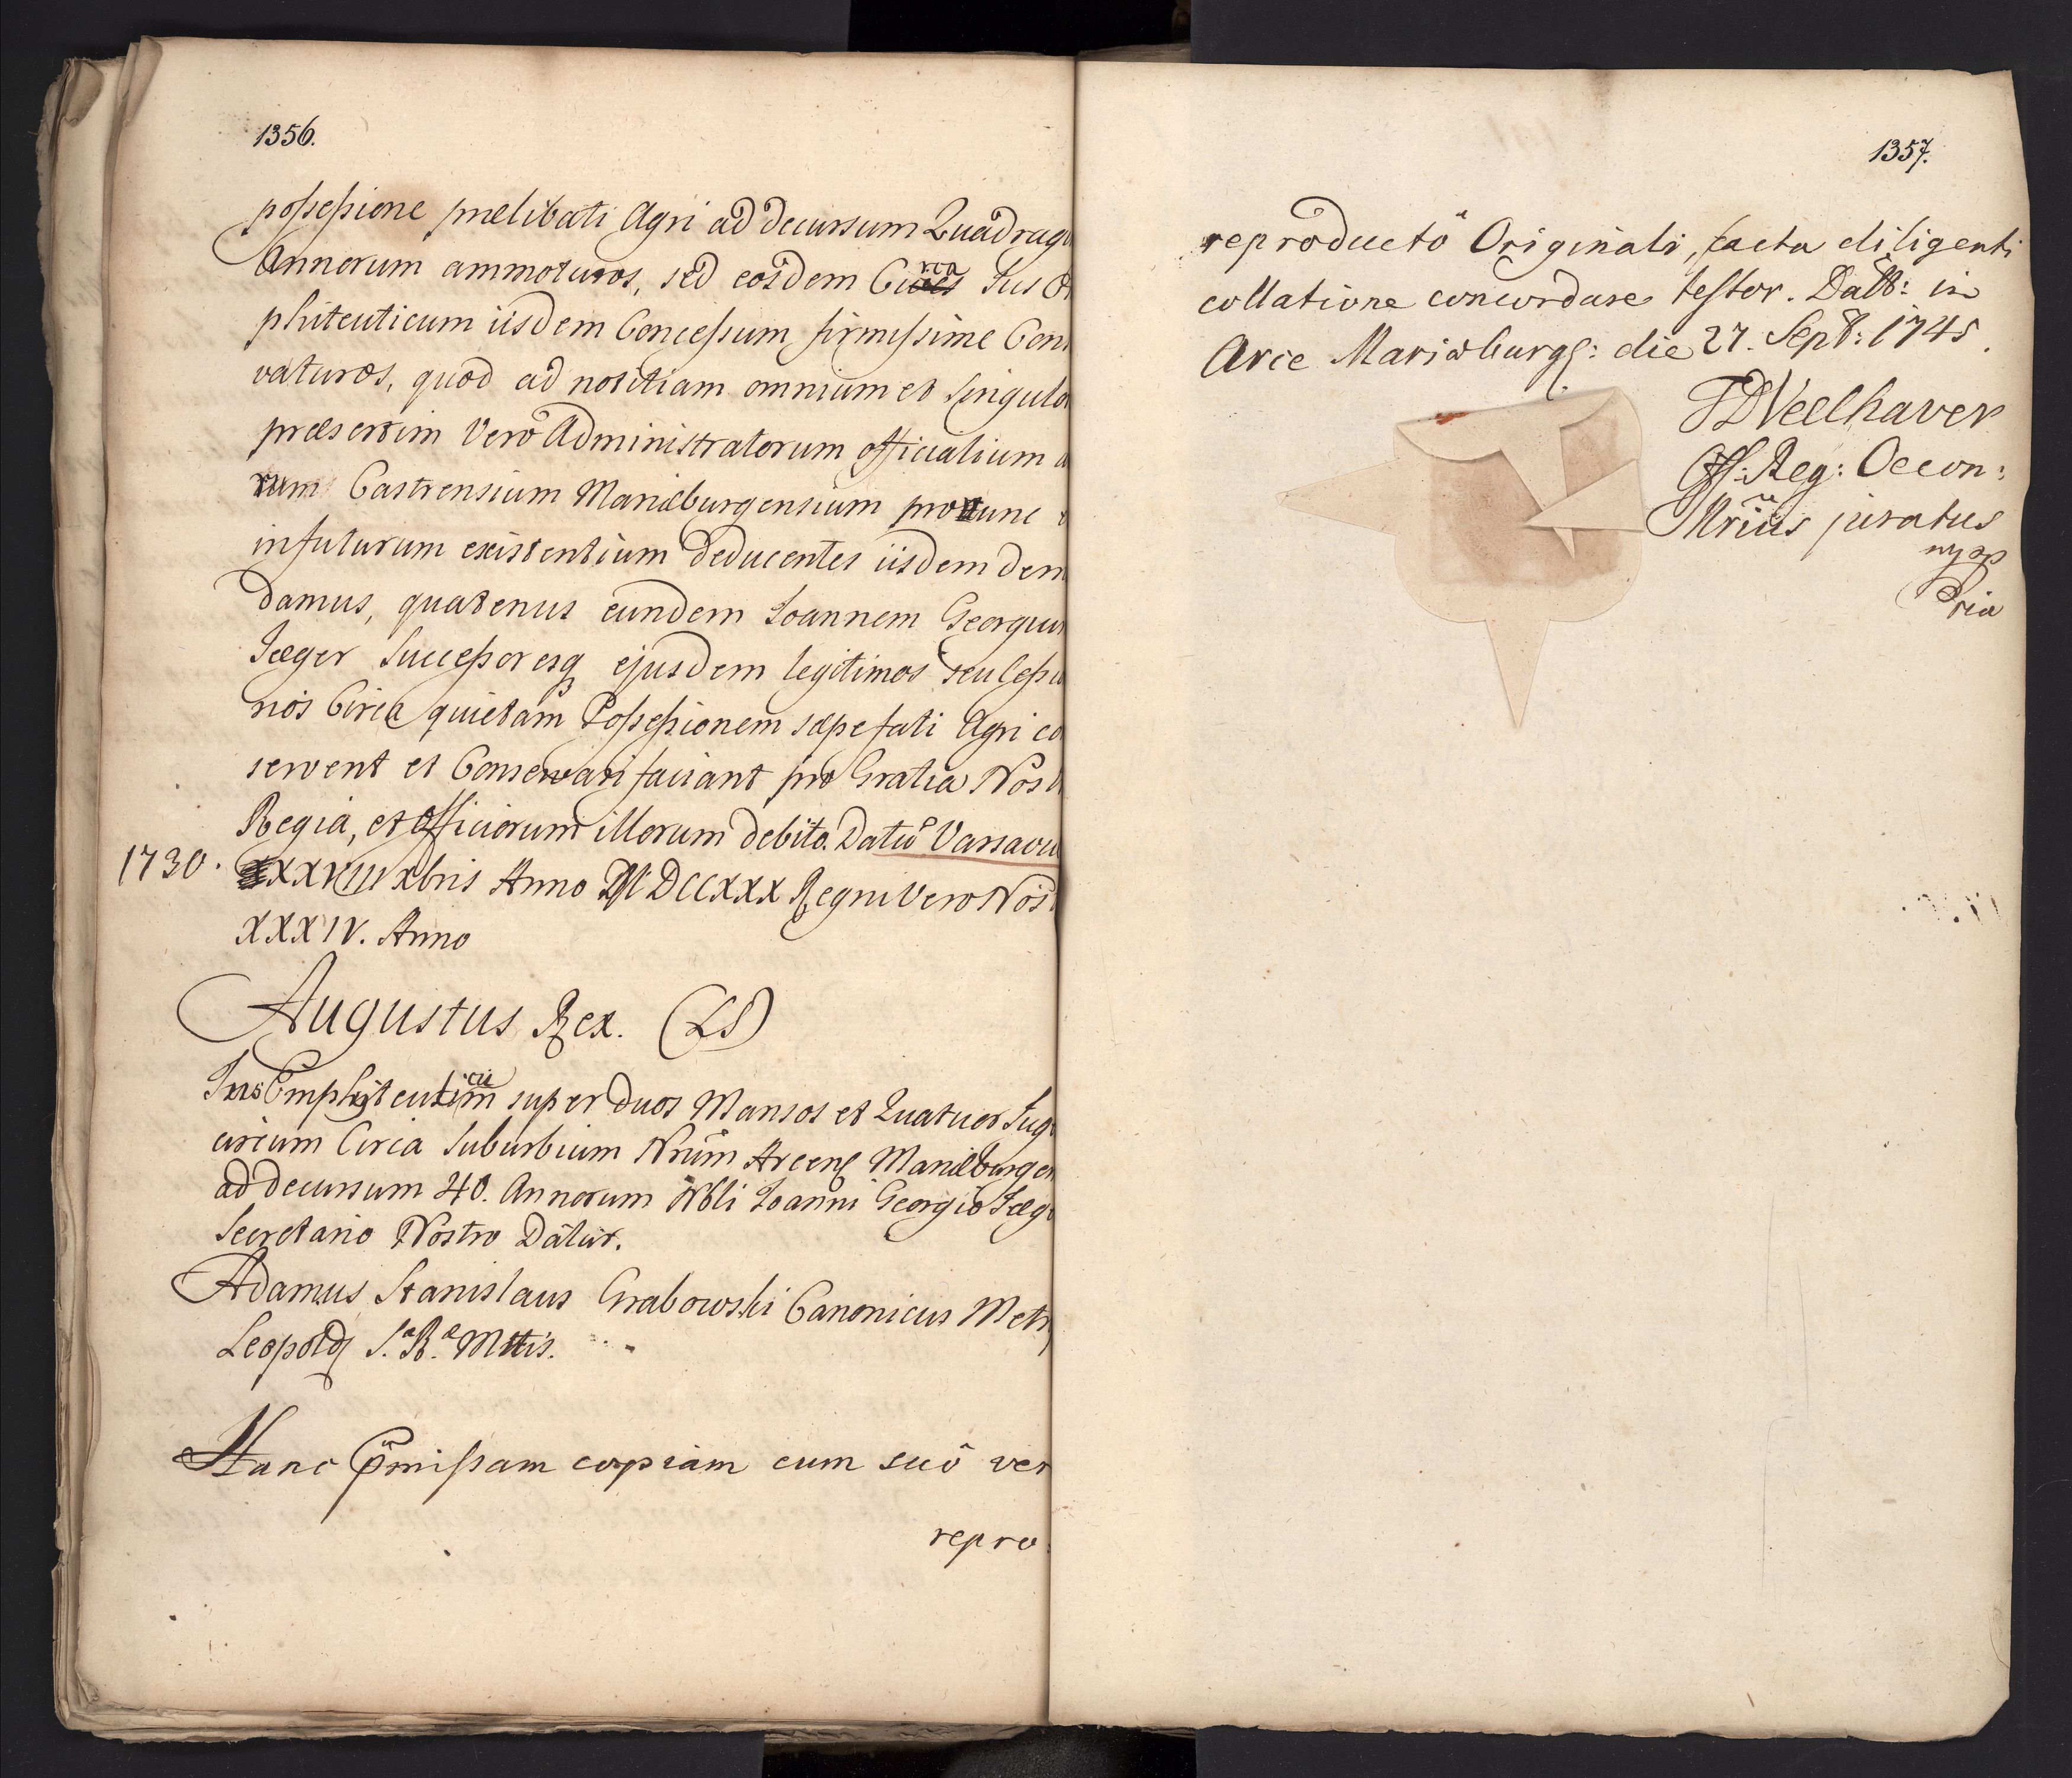 1356.
possessione prælibati Agri ad decursum Quadrag
Annorum ammoturos, sed eosdem Circa Jus E
phiteuticum iisdem Concessum firmissime Con
vaturos, quod ad notitiam omnium et Singulo
præsertim Vero Administratorum officialium
rum Castrensium Mariæburgensium pro tunc
infuturum existentium deducentes iisdem dem
damus, quatenus eundem Joannem Georgium
Jæger Successoresq ejusdem legitimos seu
nos Circa quietam Possessionem sæpefati Agri co
servent et Conservari faciant pro Gratia Nost
Regia, et Officiorum illorum debito. Datū Varsavi
1730. XXVIII Xbris Anno MDCCXXX Regni Vero Nost
XXXIV. Anno
Augustus Rex. (LS)
Jus Emphyteuticū super duos Mansos et Quatuor Jug
circa Suburbium Nrūm Arcens Mariæburgen
ad decursum 40. Annorum Nbli Joanni Georgio Jæg
Secretario Nostro Dātur.
Adamus Stanislaus Grabowski Canonicus Metr
Leopold S. R. Mttis.
Hanc p̄missam copiam cum suô ver
repro
1357.
reproductô Originali, facta diligenti
collatione concordare testor. Datt: in
Arce Mariæburg: die 27. Sept: 1745.
Veelhaver
Off: Reg: Oecon:
Nrius juratus
mpp
ria